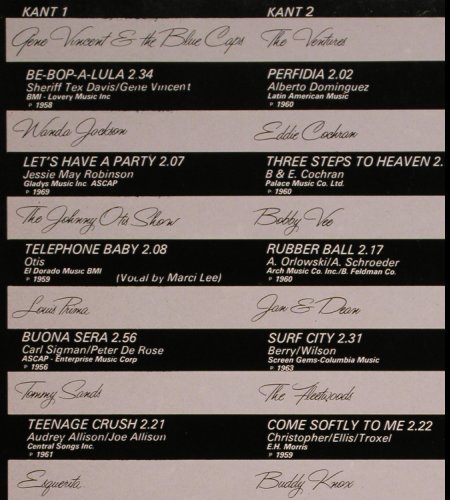 KANT 1
Gene Vincent & the Blue Caps
BE-BOP-A-LULA 2.34
Sheriff Tex Davis/Gene Vincent
BMI - Lovery Music Inc
℗ 1958
Wanda Jackson
LET'S HAVE A PARTY 2.07
Jessie May Robinson
Gladys Music Inc ASCAP
℗ 1969
The Johnny Otis Show
TELEPHONE BABY 2.08
Otis
El Dorado Music BMI
℗ 1959 (Vocal by Marci Lee)
Louis Prima
BUONA SERA 2.56
Carl Sigman/Peter De Rose
ASCAP - Enterprise Music Corp
℗ 1956
Tommy Sands
TEENAGE CRUSH 2.21
Audrey Allison/Joe Allison
Central Songs Inc.
℗ 1961
Esquerita
KANT 2
The Ventures
PERFIDIA 2.02
Alberto Dominguez
Latin American Music
℗ 1960
Eddie Cochran
THREE STEPS TO HEAVEN 2.
B & E. Cochran
Palace Music Co. Ltd.
℗ 1960
Bobby Vee
RUBBER BALL 2.17
A. Orlowski/A. Schroeder
Arch Music Co. Inc./B. Feldman Co.
℗ 1960
Jan & Dean
SURF CITY 2.31
Berry/Wilson
Screen Gems-Columbia Music
℗ 1963
The Fleetwoods
COME SOFTLY TO ME 2.22
Christopher/Ellis/Troxel
E.H. Morris
℗ 1959
Buddy Knox